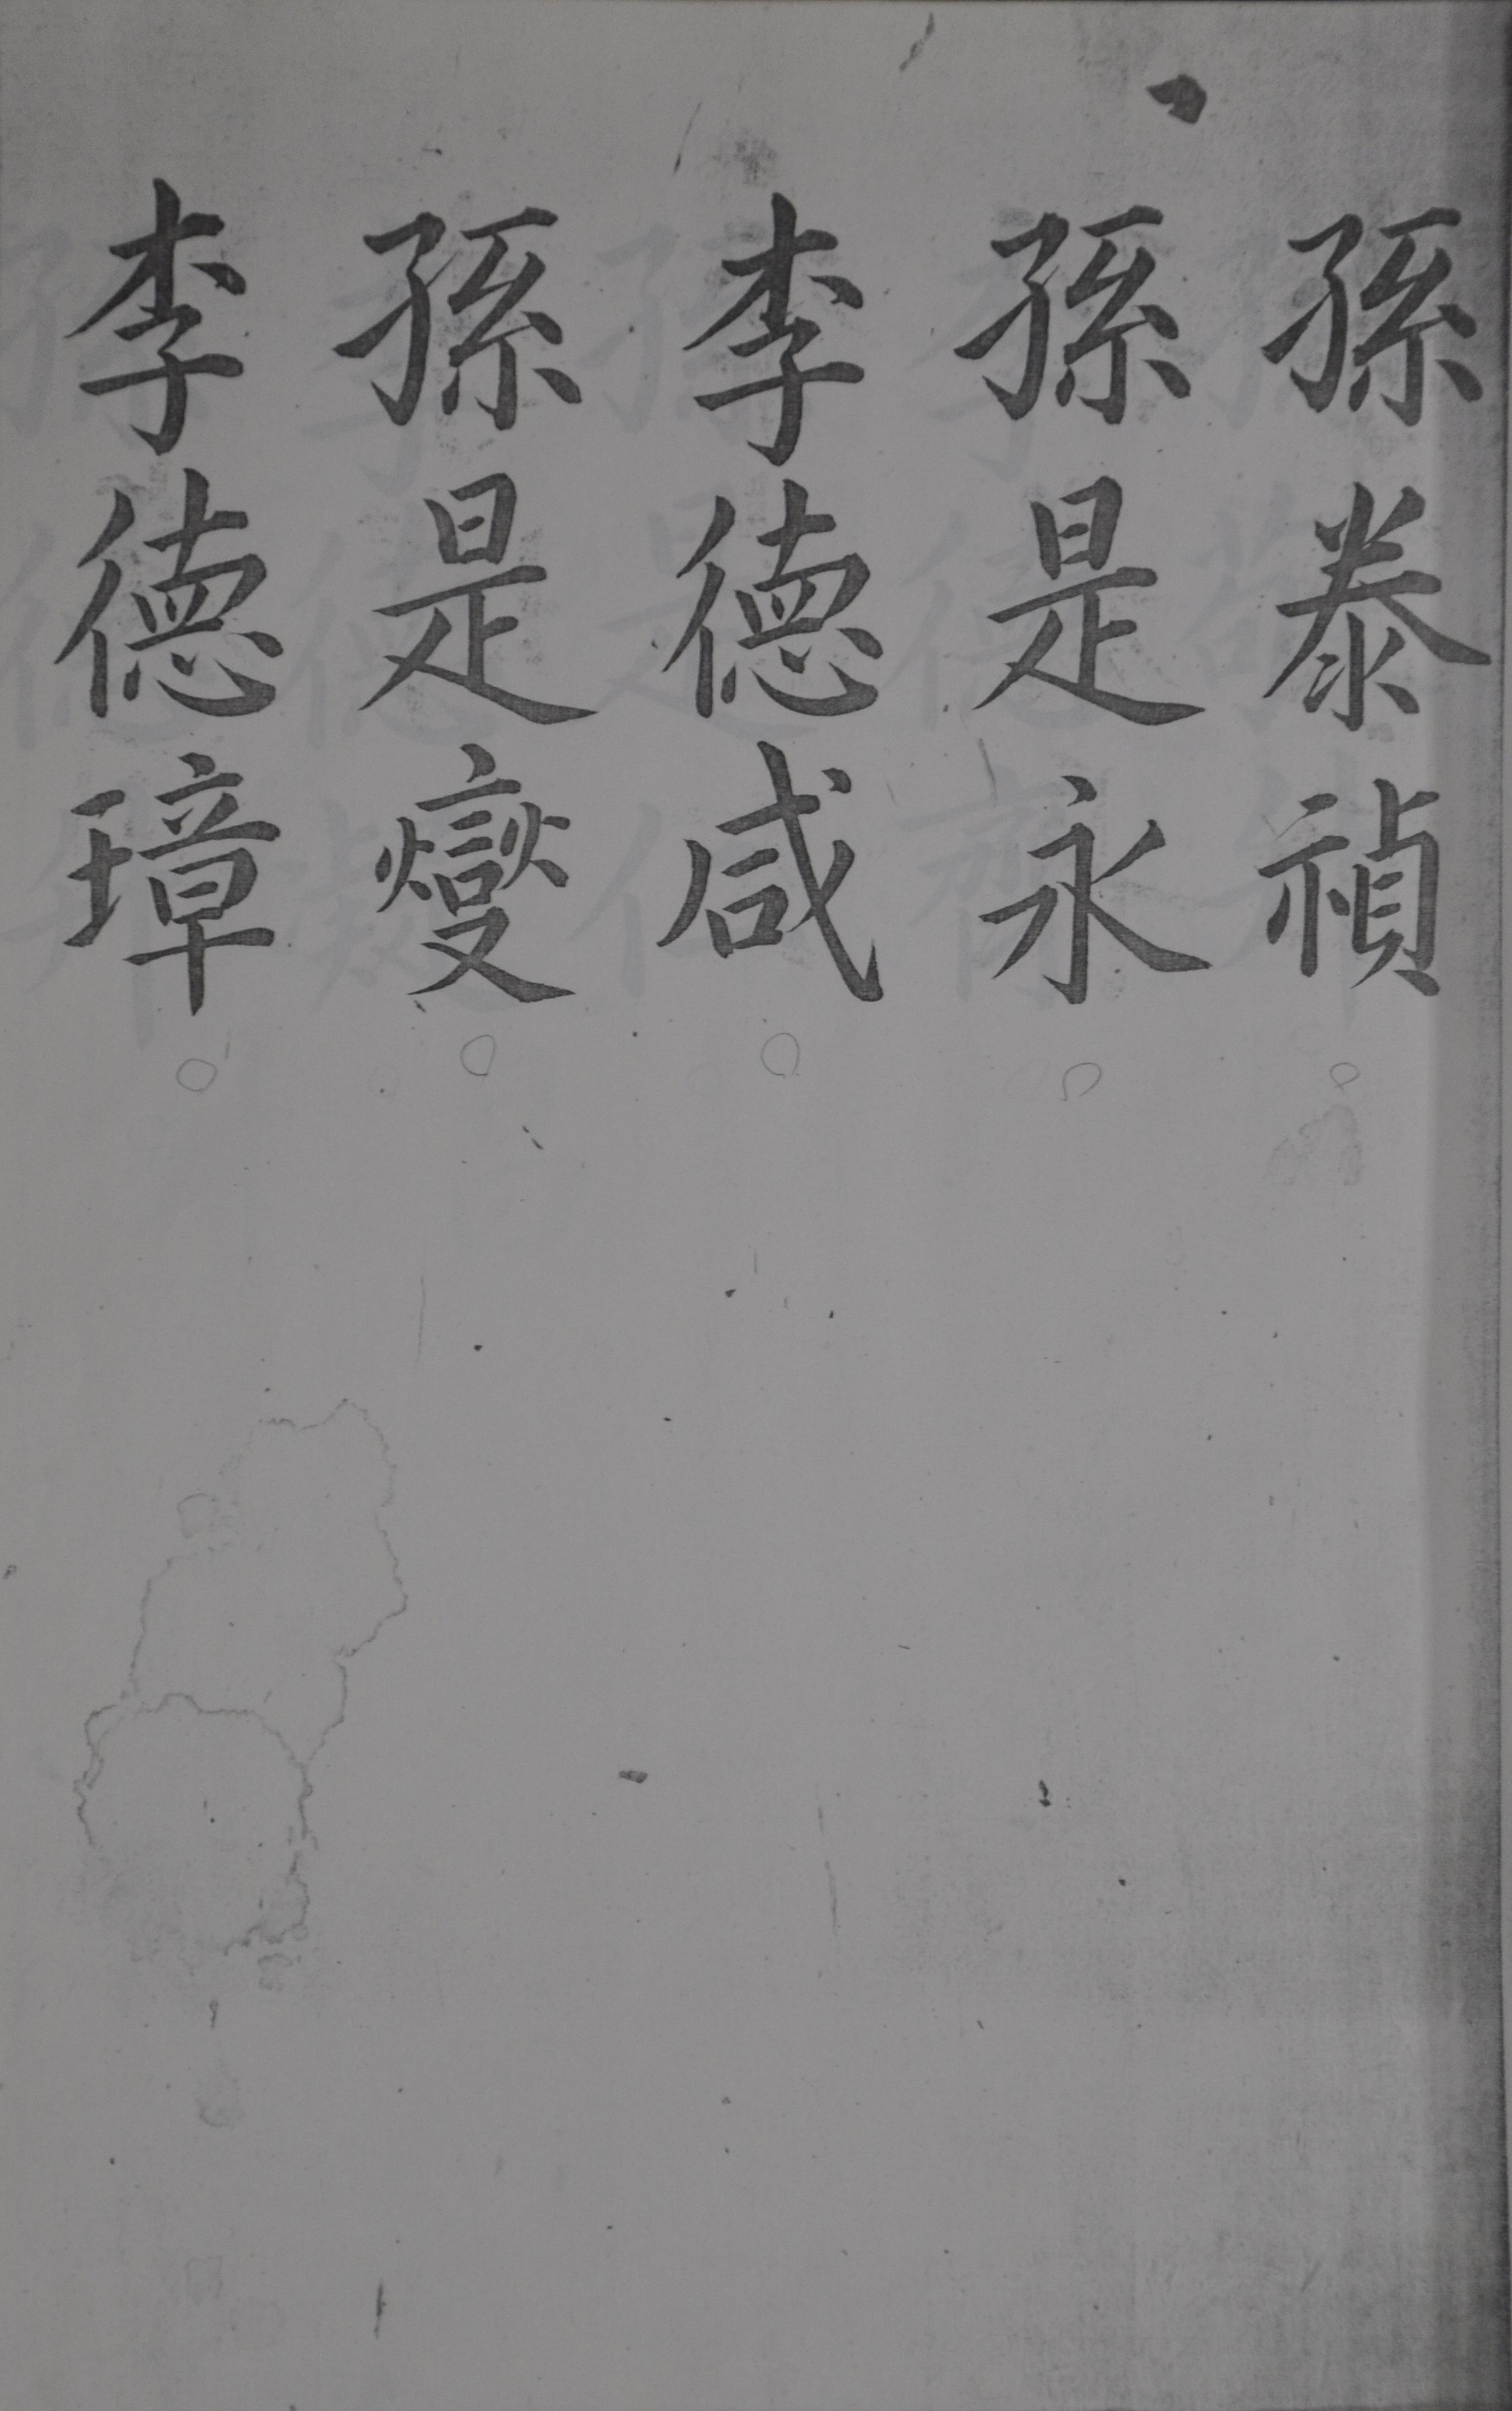 孫泰禎
孫是永
李德咸
孫是燮
李德璋